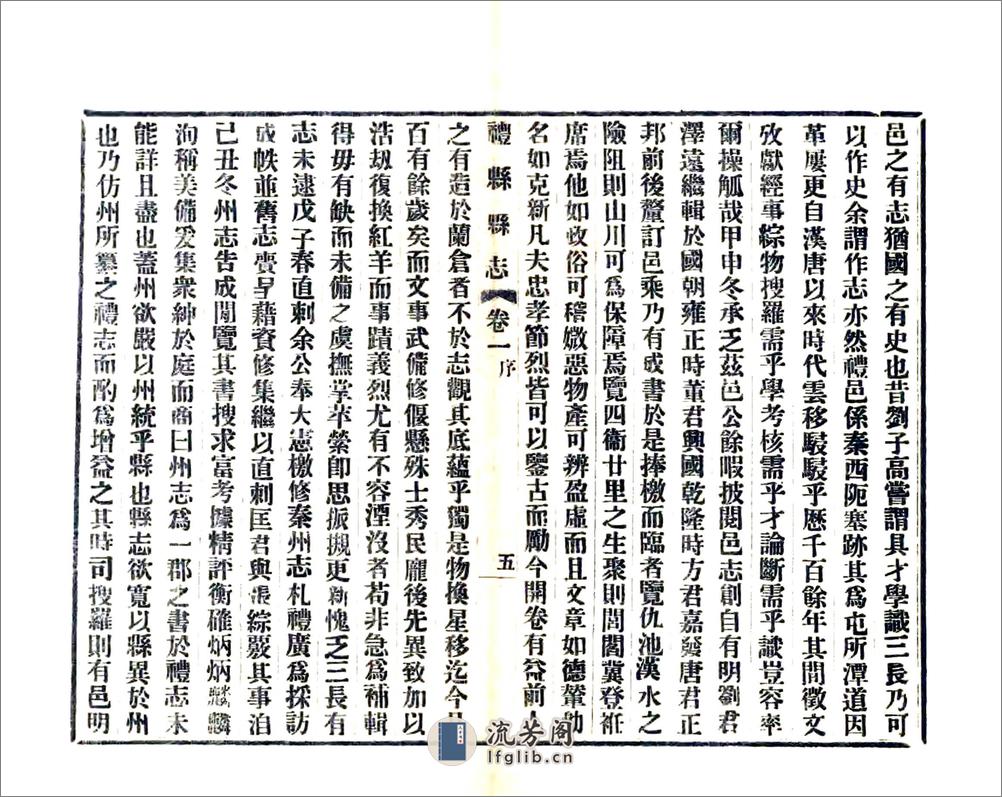 邑之有志猶國之有史也昔劉子高嘗謂具才學識三長乃可
以作史余謂作志亦然禮邑係秦西阨塞跡其爲屯所潭道因
革屢更自漢唐以來時代雲移駸駸乎歷千百餘年其間徵文
攷獻經事綜物搜羅需乎學考核需乎才論斷需乎識豈容率
爾操觚哉甲申冬承乏茲邑公餘暇披閱邑志創自有明劉君
澤遠繼輯於國朝雍正時董君興國乾隆時方君嘉發唐君正
邦前後釐訂邑乘乃有成書於是捧檄而臨者覽仇池漢水之
險阻則山川可爲保障焉覽四衞廿里之生聚則閭閻冀登袵
席焉他如政俗可稽媺惡物產可辨盈虛而且文章如德肇勛
名如克新凡夫忠孝節烈皆可以鑒古而勵今開卷有益前人
禮縣縣志 卷一 序 五
之有造於蘭倉者不於志觀其底蘊乎獨是物換星移迄今
百有餘歲矣而文事武備修偃懸殊士秀民龐後先異致加以
浩刼復換紅羊而事蹟義烈尤有不容湮沒者苟非急爲補輯
得毋有缺而未備之虞撫掌苹縈卽思振搠更新愧乏三長有
志未逮戊子春直刺余公奉大憲檄修秦州志札禮廣爲採訪
成帙並舊志賫呈藉資修集繼以直刺匡君與張綜覈其事洎
己丑冬州志告成閱覽其書搜求富考據精評衡確炳炳麟麟
洵稱美備爰集衆紳於庭而商曰州志爲一郡之書於禮志未
能詳且盡也蓋州欲嚴以州統乎縣也縣志欲寬以縣異於州
也乃仿州所纂之禮志而酌爲增益之其時司搜羅則有邑明
流芳阁
lfglib.cn